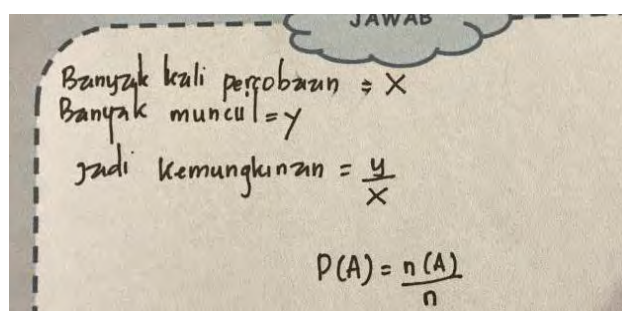 JAWAB
Banyak kali percobaan = X
Banyak muncul = y
Jadi kemungkinan = y/x
P(A) = n(A)/n